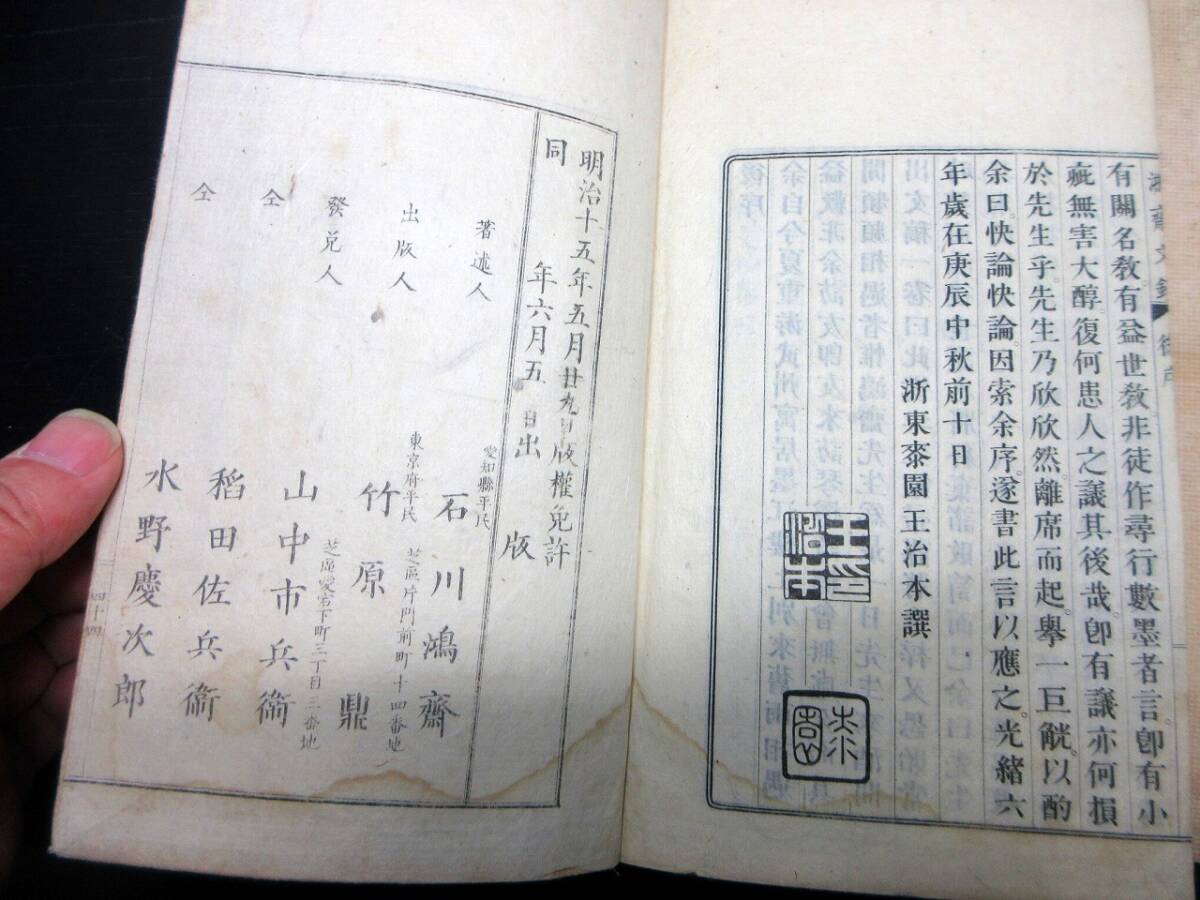 有關名敎有益世敎非徒作尋行數墨者言。卽有小
疵無害大醇。復何患人之議其後哉。卽有議亦何損
於先生乎。先生乃欣欣然。離席而起。擧一巨觥。以酌
余曰。快論快論。因索余序。遂書此言以應之。光緖六
年歲在庚辰中秋前十日
浙東桼園王治本譔
王印治本
桼園
明治十五年五月廿九日版權免許
同 年六月五 日出 版
著述人 愛知縣平民 石川鴻齋
出版人 東京府平民 竹原鼎
芝區片門前町十四番地
發兌人 山中市兵衞
芝區愛宕下町三丁目三番地
仝 稻田佐兵衞
仝 水野慶次郎
四十四